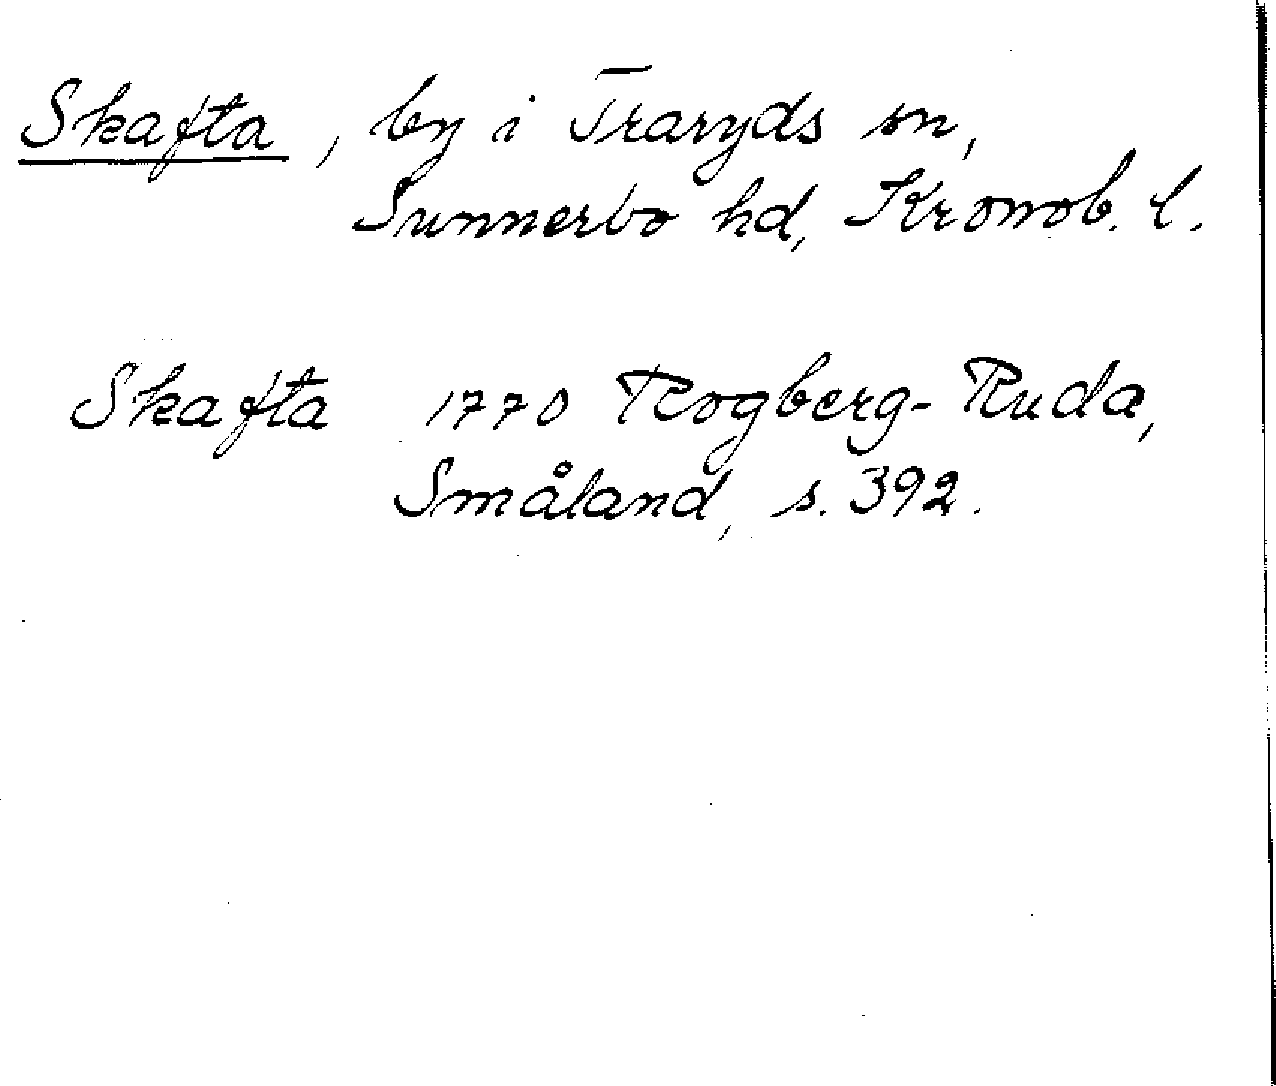 Skafta, by i Traryds sn,
Sunnerbo hd, Kronob. l.
Skafta 1770 Rogberg-Ruda,
Småland, s. 392.